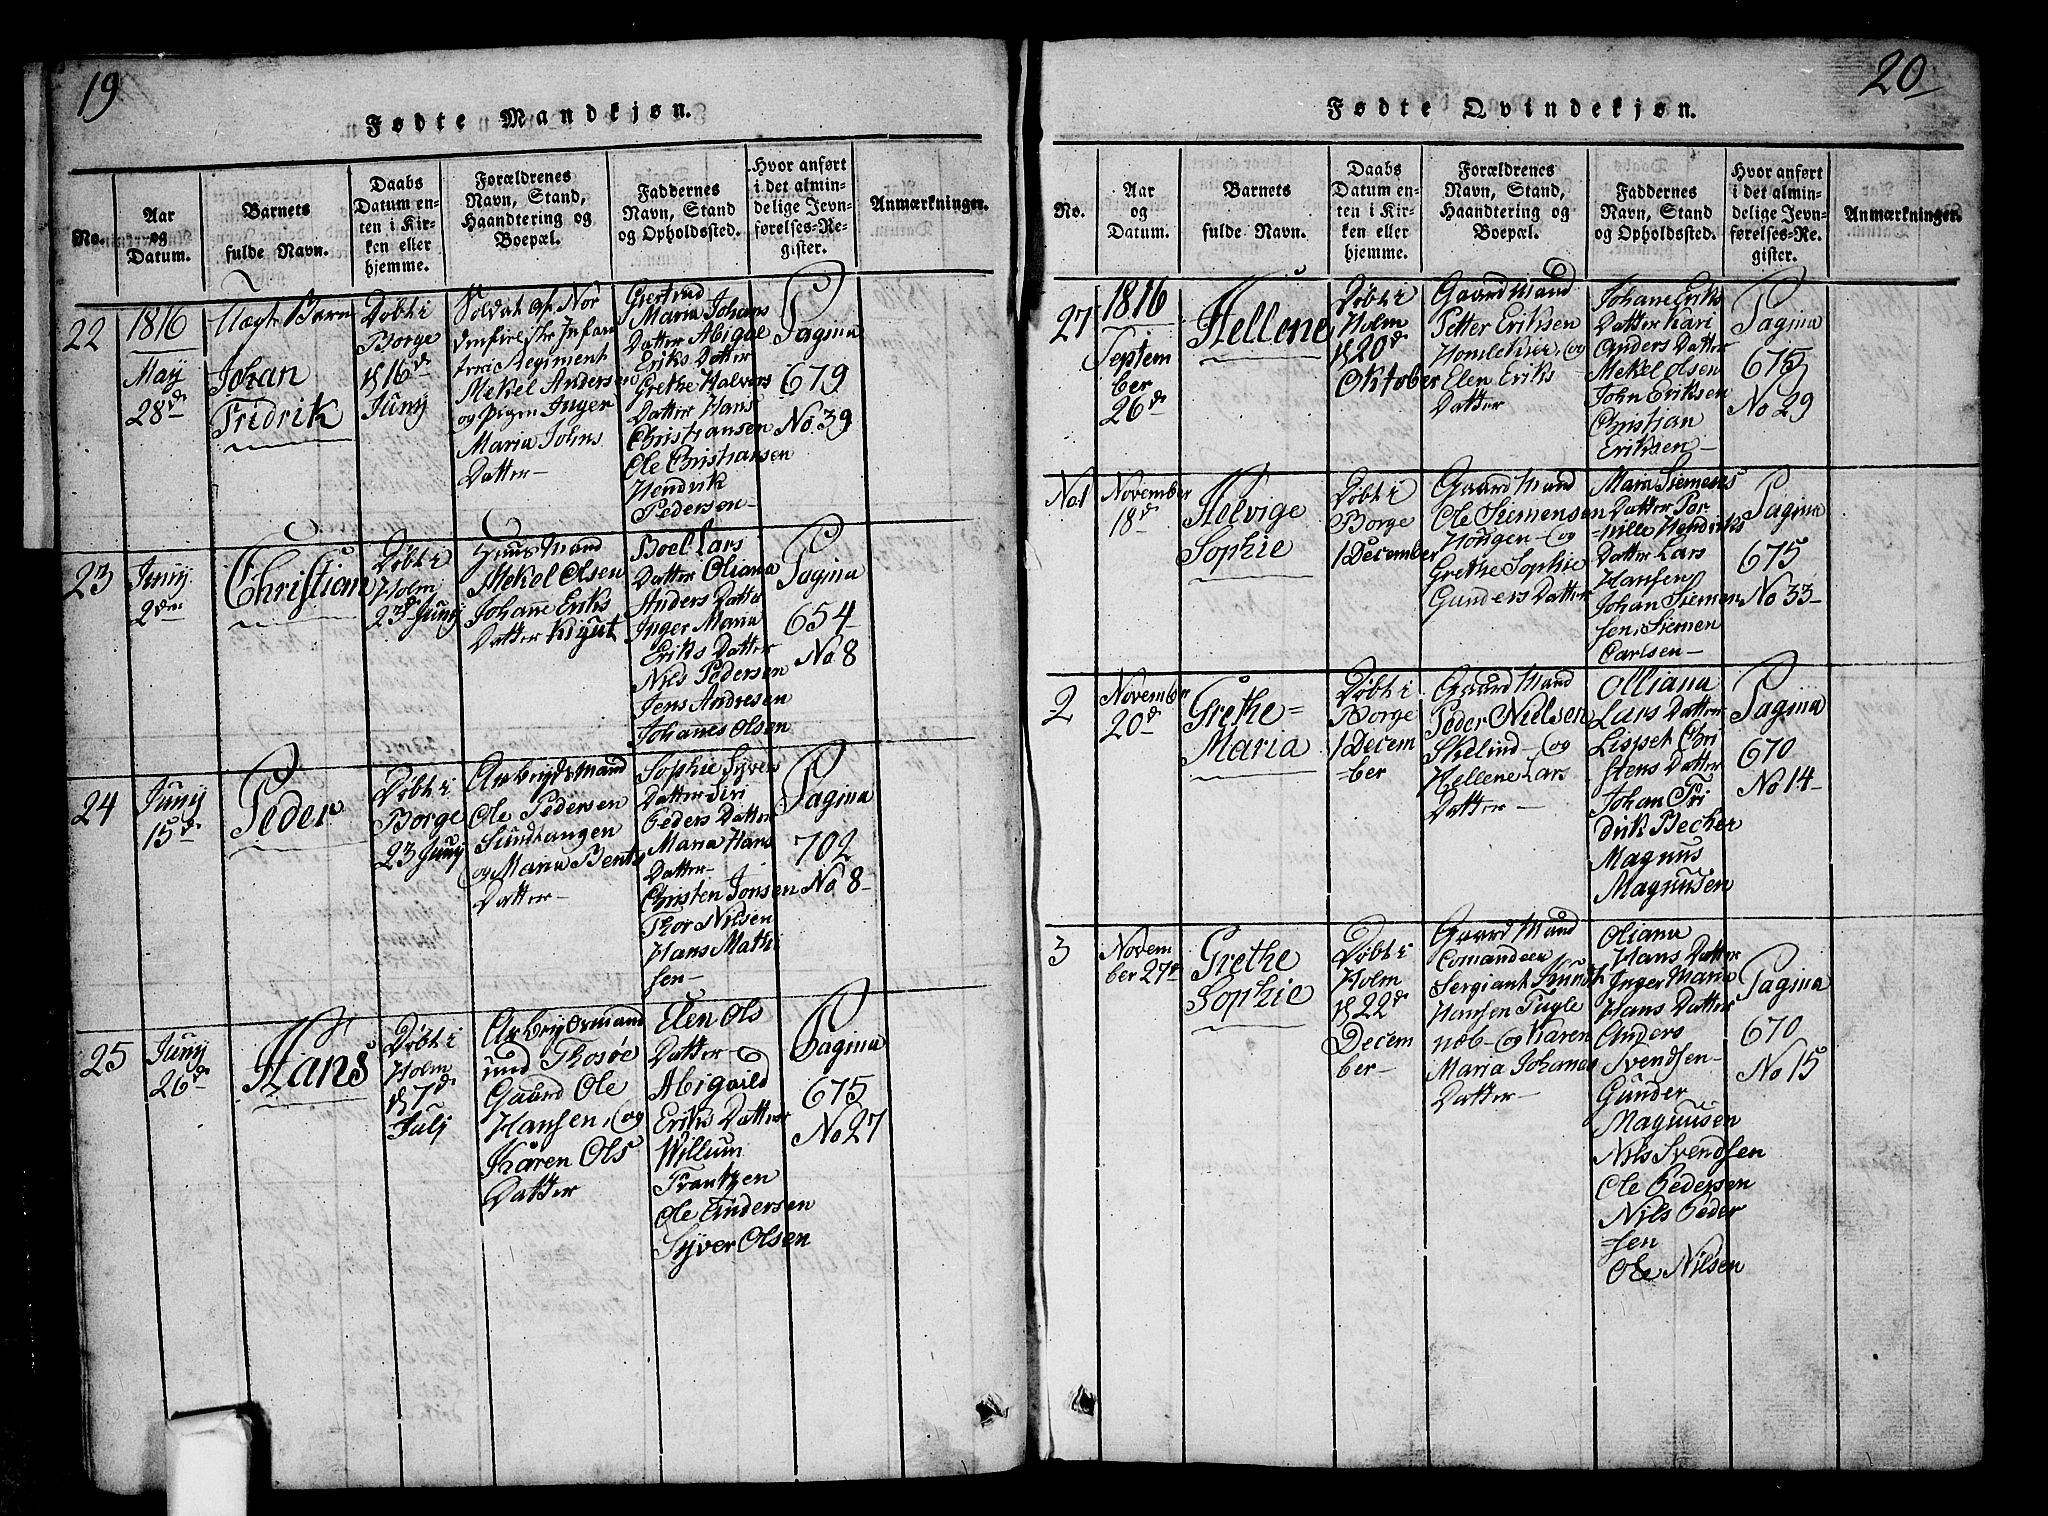 19
Fødte Mandkjøn.
No.
Aar
og
Datum.
Barnets
fulde Navn.
Daabs
Datum en-
ten i Kir-
ken eller
hjemme.
Forældrenes
Navn, Stand,
Haandtering og
Boepæl.
Faddernes
Navn, Stand
og Opholdssted.
Hvor anført
i det almin-
delige Jevn-
førelses-Re-
gister.
Anmærkninger.
22
1816
May
28de
Uægte Barn
Johan
Fridrik
Døbt i
Borge
d 16de
Juny
Soldat af Nor
denfielske Infan
terie Regiment
Mekel Andersen
og Pigen Inger
Maria Johns
Datter-
Giertrud
Maria Johans
Datter Abigae
Eriks Datter
Grethe Halvors
Datter Hans
Christiansen
Ole Christiansen
Hendrik
Pedersen-
Pagina
679
No. 39
23
Juny
2den
Christian
Døbt i
Holm
23de Juny
Huus Mand
Mekel Olsen
Johane Eriks
Datter Kigut
Boel Lars
Datter Oliana
Anders Datter
Inger Maria
Eriks Datter
Nils Pedersen
Jens Andresen
Johanes Olsen
Pagina
654
No 8
24
Juny
15de
Peder
Døbt i
Borge
23 Juny
Arbeydsmand
Ole Pedersen
Sundhangen
og Maria Bents
Datter-
Sophie Syvers
Datter Siri
Peders Datter
Maria Hans
Datter-
Christen Jonsen
Thor Nilsen
Hans Mathi
sen-
Pagina
702
No 8-
25
Juny
26de
Hans
Døbt i
Holm
d 7de
July
Arbeydsmand
und Thosøe
Gaard Ole
Hansen, og
Karen Ols
Datter
Elen Ols
Datter-
Abigaild
Eriks Datter
Willum
Frantzen
Ole Andersen
Syver Olsen
Pagina
675
No 27
20
Fødte Qvindekjøn.
No.
Aar
og
Datum.
Barnets
fulde Navn.
Daabs
Datum en-
ten i Kir-
ken eller
hjemme.
Forældrenes
Navn, Stand,
Haandtering og
Boepæl.
Faddernes
Navn, Stand
og Opholdssted.
Hvor anført
i det almin-
delige Jevn-
førelses-Re-
gister.
Anmærkninger.
27
1816
Septem
ber
26de
Hellene
Døbt i
Holm
d 20de
Oktober
Gaard Mand
Petter Eriksen
Homlekier, og
Elen Eriks
Datter
Johane Eriks
Datter Kari
Anders Datter
Mekel Olsen
John Eriksen
Christian
Eriksen-
Pagina
675
No 29
No.1
November
18de
Helvige
Sophie
Døbt i
Borge
1 December
Gaard Mand
Ole Siemensen
Hougen- og
Grethe Sophie
Gunders Datter
Mari Siemens
Datter Per
nille Hendriks
Datter Lars
Hansen
Johan Siemen
sen, Siemen
Carlsen-
Pagina
675
No 33-
2
November
20de
Grethe=
Maria
Døbt i
Borge
1 Decem
=ber
Gaard Mand
Peder Nielsen
Skelind- og
Hellene Lars
Datter-
Olliana
Lars Datter
Lispet Chri
stens Datter
Johan Fri
drik Becher
Magnus
Magnusen
Pagina
670
No 14-
3
Novem
ber 27de
Grethe
Sophie
Døbt i
Holm
d 22de
Decem
ber-
Gaard Mand
Comandeer
Sergiant Knudt
Hansen Fugle
næb- og Karen
Maria Johanes
Datter-
Oliana
Hans Datter
Inger Maria
Hans Datter
Anders
Svendsen-
Gunder
Magnusen
Nils Svendsen
Ole Pedersen
Nils Peder
=sen
Ole Nilsen
Pagina
670
No 15